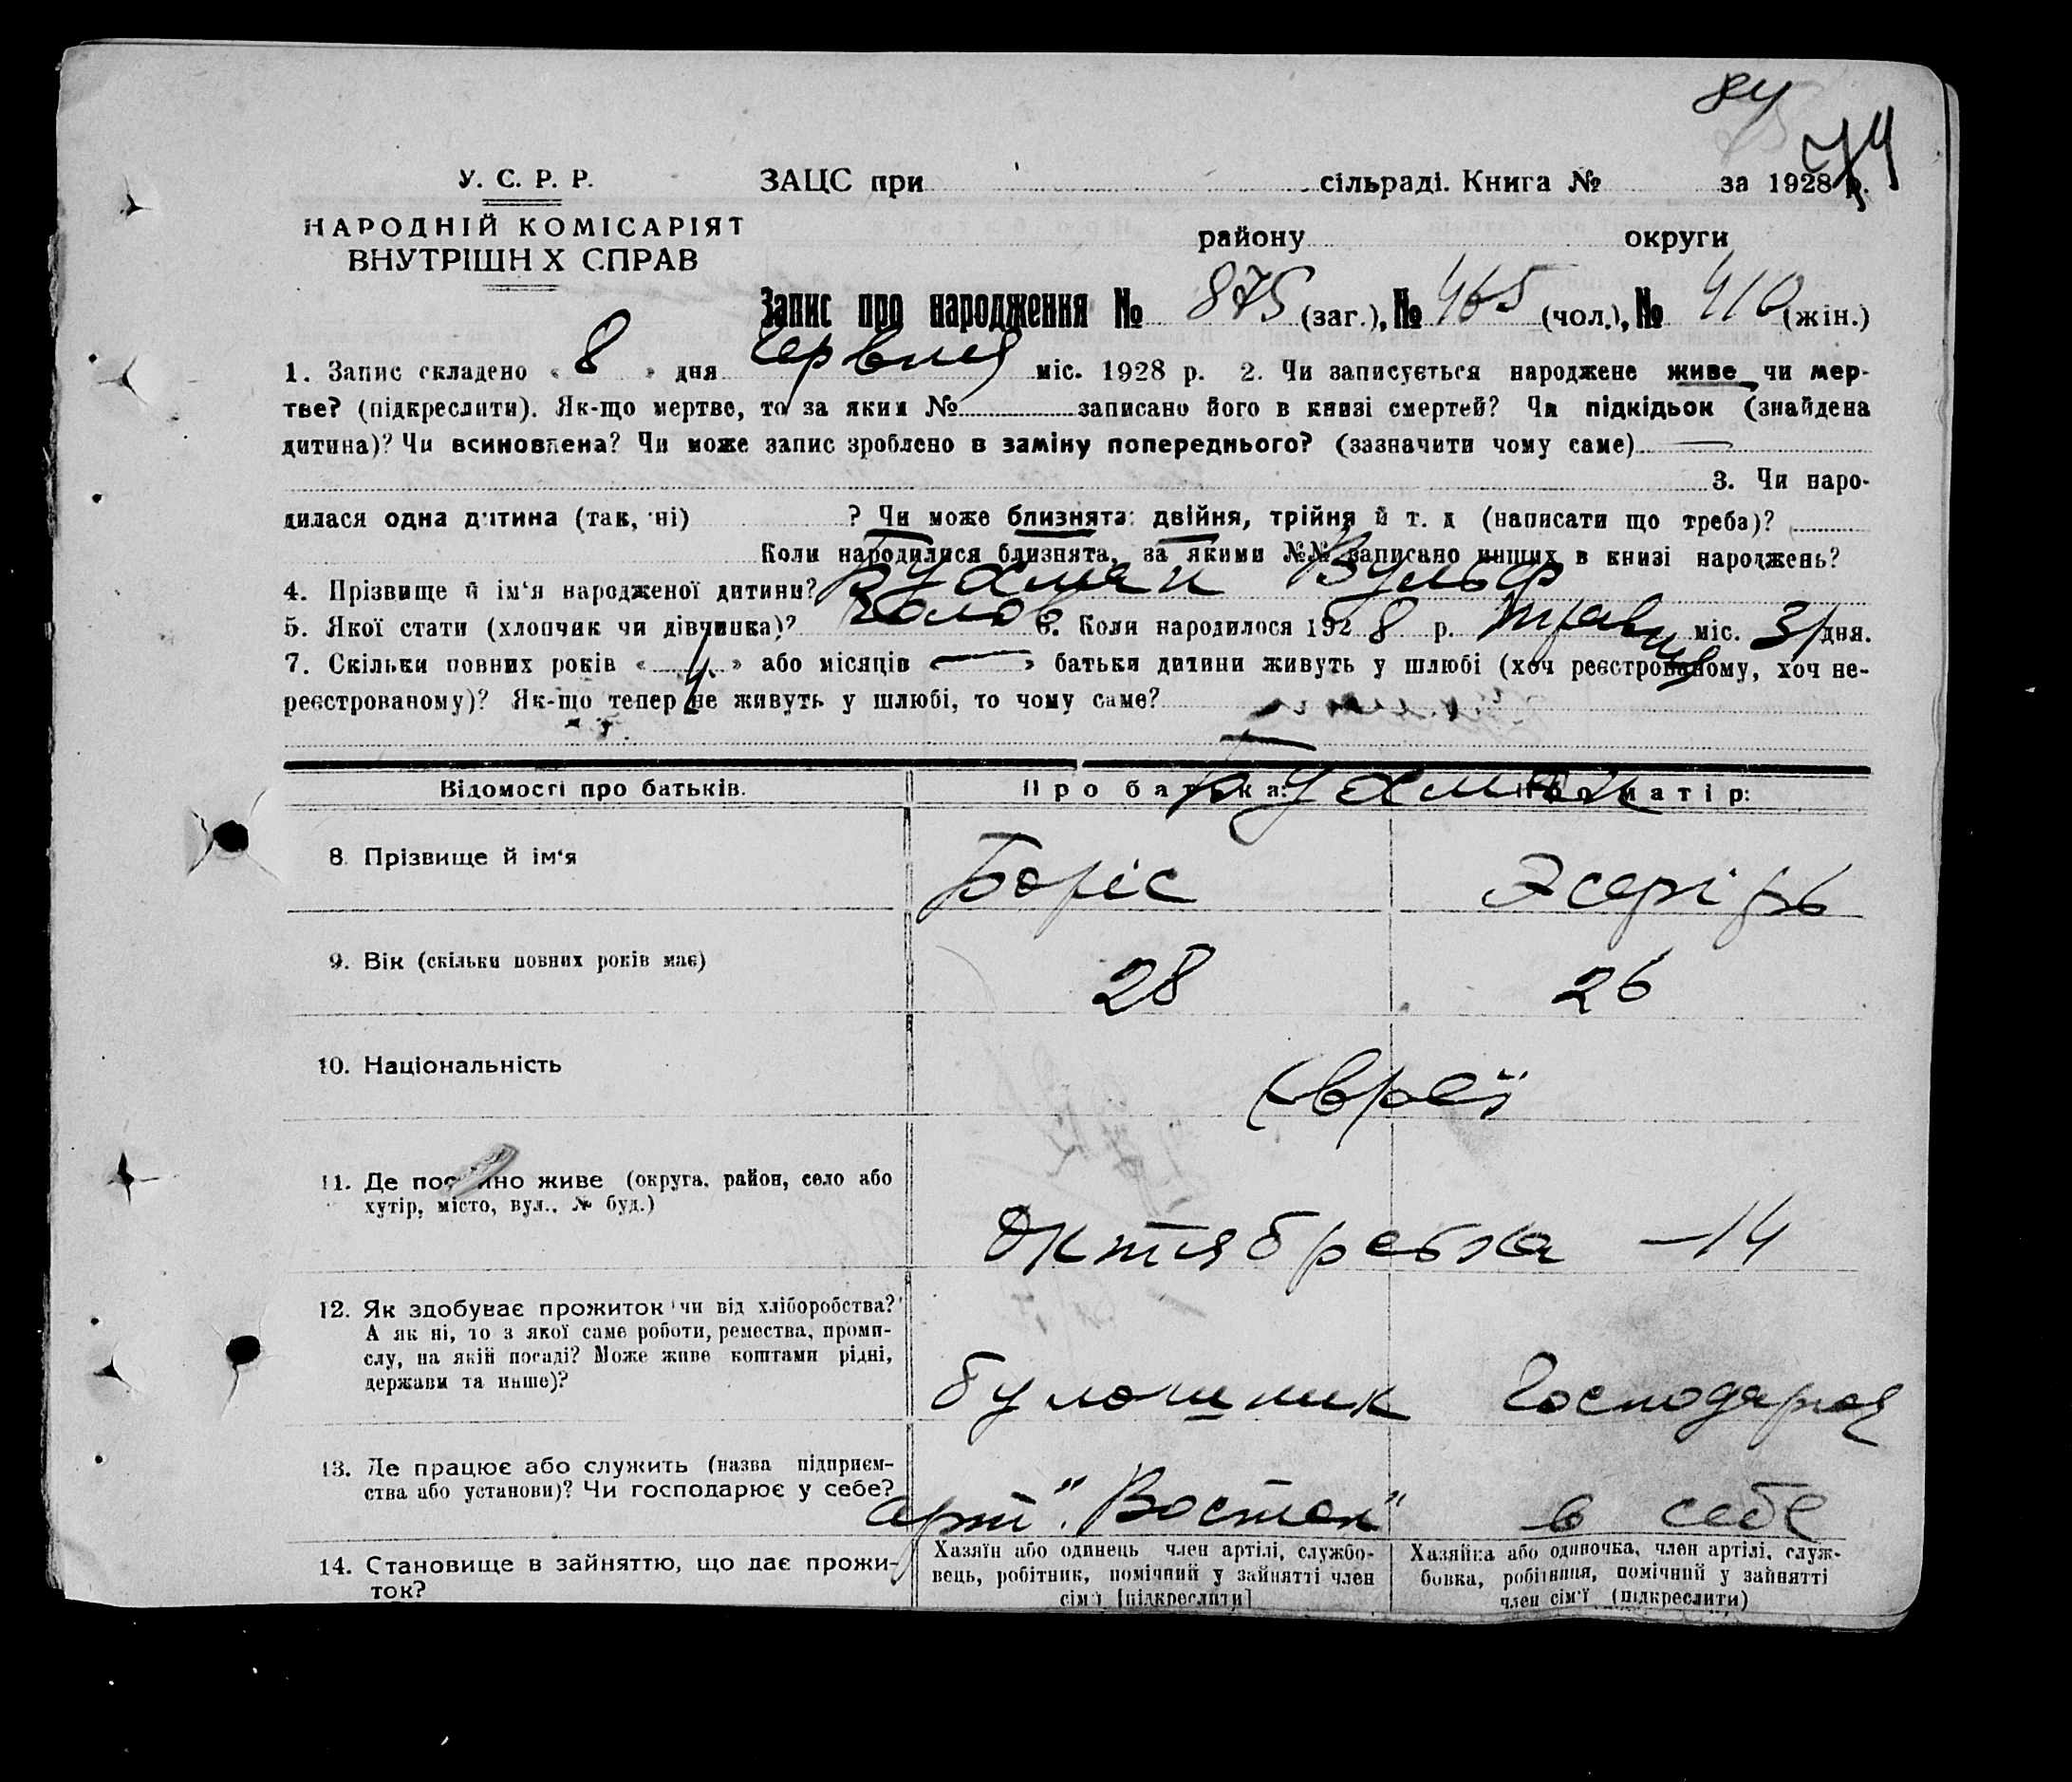 84
74
У. С. Р. Р. ЗАЦС при сільраді. Книга № за 1928 р.
НАРОДНІЙ КОМІСАРІЯТ
району округи
ВНУТРІШН Х СПРАВ
Запис про народження № 875 (заг.), № 465 (чол.), № 410 (жін.)
1. Запис складено « 8 » дня червня міс. 1928 р. 2. Чи записується народжене живе чи мер-
тве? (підкреслити). Як-що мертве, то за яким № записано його в книзі смертей? Чи підкідьок (знайдена
дитина)? Чи всиновлена? Чи може запис зроблено в заміну попереднього? (зазначити чому саме) —
3. Чи наро-
дилася одна дитина (так, ні) ? Чи може близнята: двійня, трійня й т. д (написати що треба)?
Коли народилися близнята, за якими №№ записано инших в книзі народжень?
4. Прізвище й ім'я народженої дитини? Бухман Вульф
5. Якої стати (хлопчик чи дівчинка)? чолов 6. Коли народилося 192 8 р. травня міс. 31 дня.
7. Скільки повних років « 4 » або місяців « — » батьки дитини живуть у шлюбі (хоч реєстрованому, хоч не-
реєстрованому)? Як-що тепер не живуть у шлюбі, то чому саме?
Відомості про батьків. Про батька: Про матір:
Бухман
8. Прізвище й ім'я Боріс
9. Вік (скільки повних років має) 28 26
10. Національність євреї
11. Де постійно живе (округа, район, село або
хутір, місто, вул., № буд.)
Октябревка —14
12. Як здобуває прожиток (чи від хліборобства?
А як ні, то з якої саме роботи, ремества, проми-
слу, на якій посаді? Може живе коштами рідні,
держави та инше)?
булошник Господарка
13. Де працює або служить (назва підприєм-
ства або установи)? Чи господарює у себе?
арт. "Восток" в себе
14. Становище в зайняттю, що дає прожи-
ток?
Хазяїн або одинець член артілі, службо-
вець, робітник, помічний у зайнятті член
сім'ї [підкреслити]
Хазяйка або одиночка, член артілі, служ-
бовка, робітниця, помічний у зайнятті
член сім'ї (підкреслити)